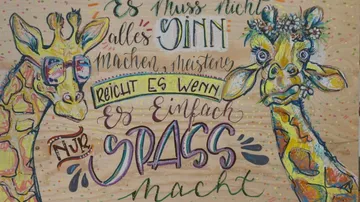 Es muss nicht
alles SINN
machen, meistens
REICHT ES WENN
Es Einfach
NUR
SPASS
macht